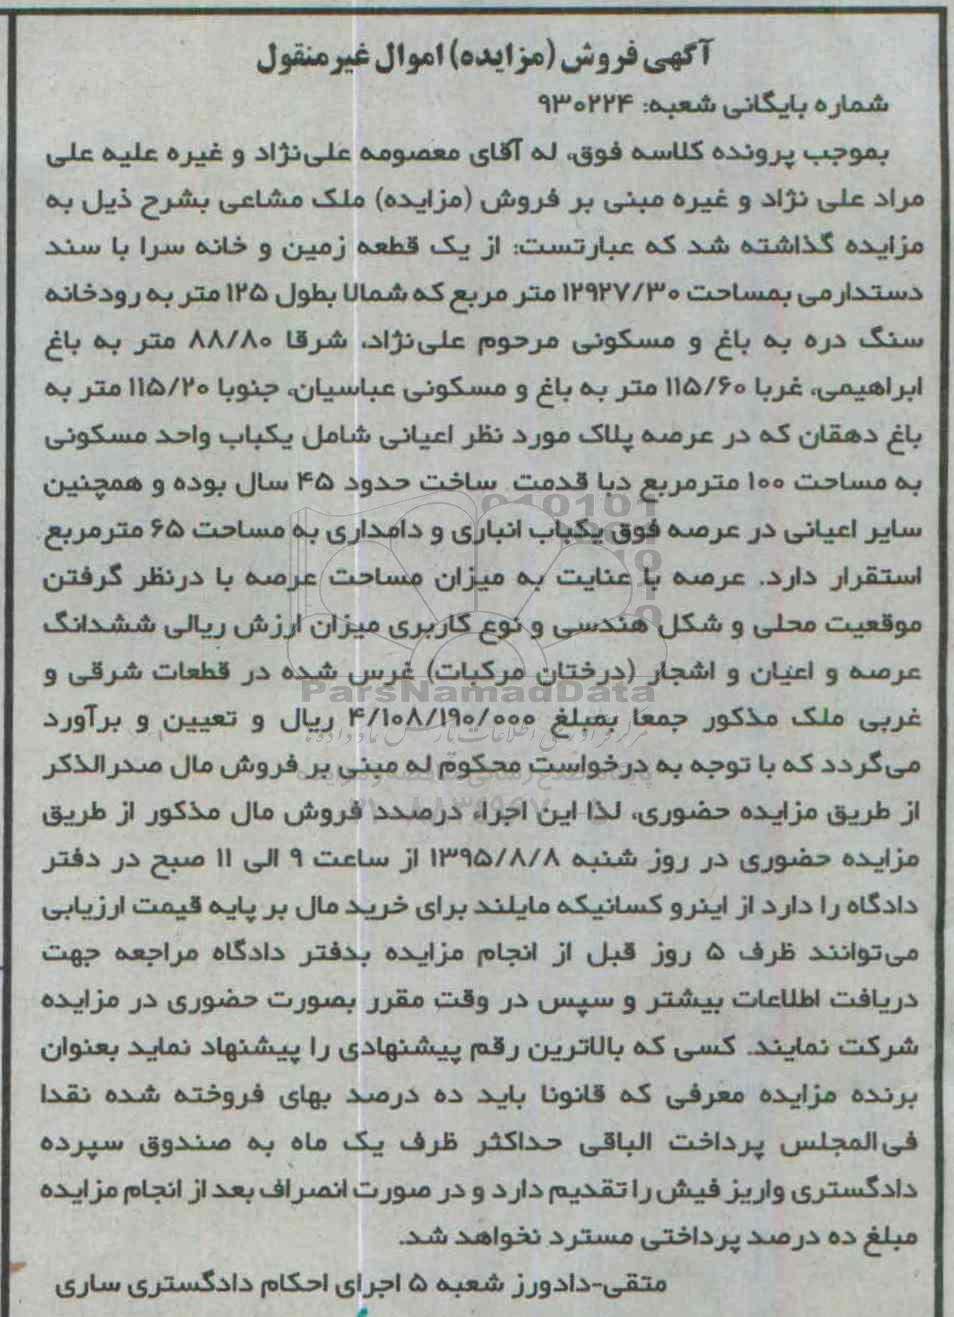 آگهی فروش (مزایده) اموال غیرمنقول
شماره بایگانی شعبه: ۹۳۰۲۲۴
بموجب پرونده کلاسه فوق، له آقای معصومه علی‌نژاد و غیره علیه علی
مراد علی نژاد و غیره مبنی بر فروش (مزایده) ملک مشاعی بشرح ذیل به
مزایده گذاشته شد که عبارتست: از یک قطعه زمین و خانه سرا با سند
دستدارمی بمساحت ۱۲۹۲۷/۳۰ متر مربع که شمالا بطول ۱۲۵ متر به رودخانه
سنگ دره به باغ و مسکونی مرحوم علی‌نژاد، شرقا ۸۸/۸۰ متر به باغ
ابراهیمی، غربا ۱۱۵/۶۰ متر به باغ و مسکونی عباسیان، جنوبا ۱۱۵/۲۰ متر به
باغ دهقان که در عرصه پلاک مورد نظر اعیانی شامل یکباب واحد مسکونی
به مساحت ۱۰۰ مترمربع دبا قدمت ساخت حدود ۴۵ سال بوده و همچنین
سایر اعیانی در عرصه فوق یکباب انباری و دامداری به مساحت ۶۵ مترمربع
استقرار دارد. عرصه با عنایت به میزان مساحت عرصه با درنظر گرفتن
موقعیت محلی و شکل هندسی و نوع کاربری میزان ارزش ریالی ششدانگ
عرصه و اعیان و اشجار (درختان مرکبات) غرس شده در قطعات شرقی و
ParsNamadData
غربی ملک مذکور جمعا بمبلغ ۴/۱۰۸/۱۹۰/۰۰۰ ریال و تعیین و برآورد
می‌گردد که با توجه به درخواست محکوم له مبنی بر فروش مال صدرالذکر
از طریق مزایده حضوری، لذا این اجراء درصدد فروش مال مذکور از طریق
مزایده حضوری در روز شنبه ۱۳۹۵/۸/۸ از ساعت ۹ الی ۱۱ صبح در دفتر
دادگاه را دارد از اینرو کسانیکه مایلند برای خرید مال بر پایه قیمت ارزیابی
می‌توانند ظرف ۵ روز قبل از انجام مزایده بدفتر دادگاه مراجعه جهت
دریافت اطلاعات بیشتر و سپس در وقت مقرر بصورت حضوری در مزایده
شرکت نمایند. کسی که بالاترین رقم پیشنهادی را پیشنهاد نماید بعنوان
برنده مزایده معرفی که قانونا باید ده درصد بهای فروخته شده نقدا
فی‌المجلس پرداخت الباقی حداکثر ظرف یک ماه به صندوق سپرده
دادگستری واریز فیش را تقدیم دارد و در صورت انصراف بعد از انجام مزایده
مبلغ ده درصد پرداختی مسترد نخواهد شد.
متقی-دادورز شعبه ۵ اجرای احکام دادگستری ساری